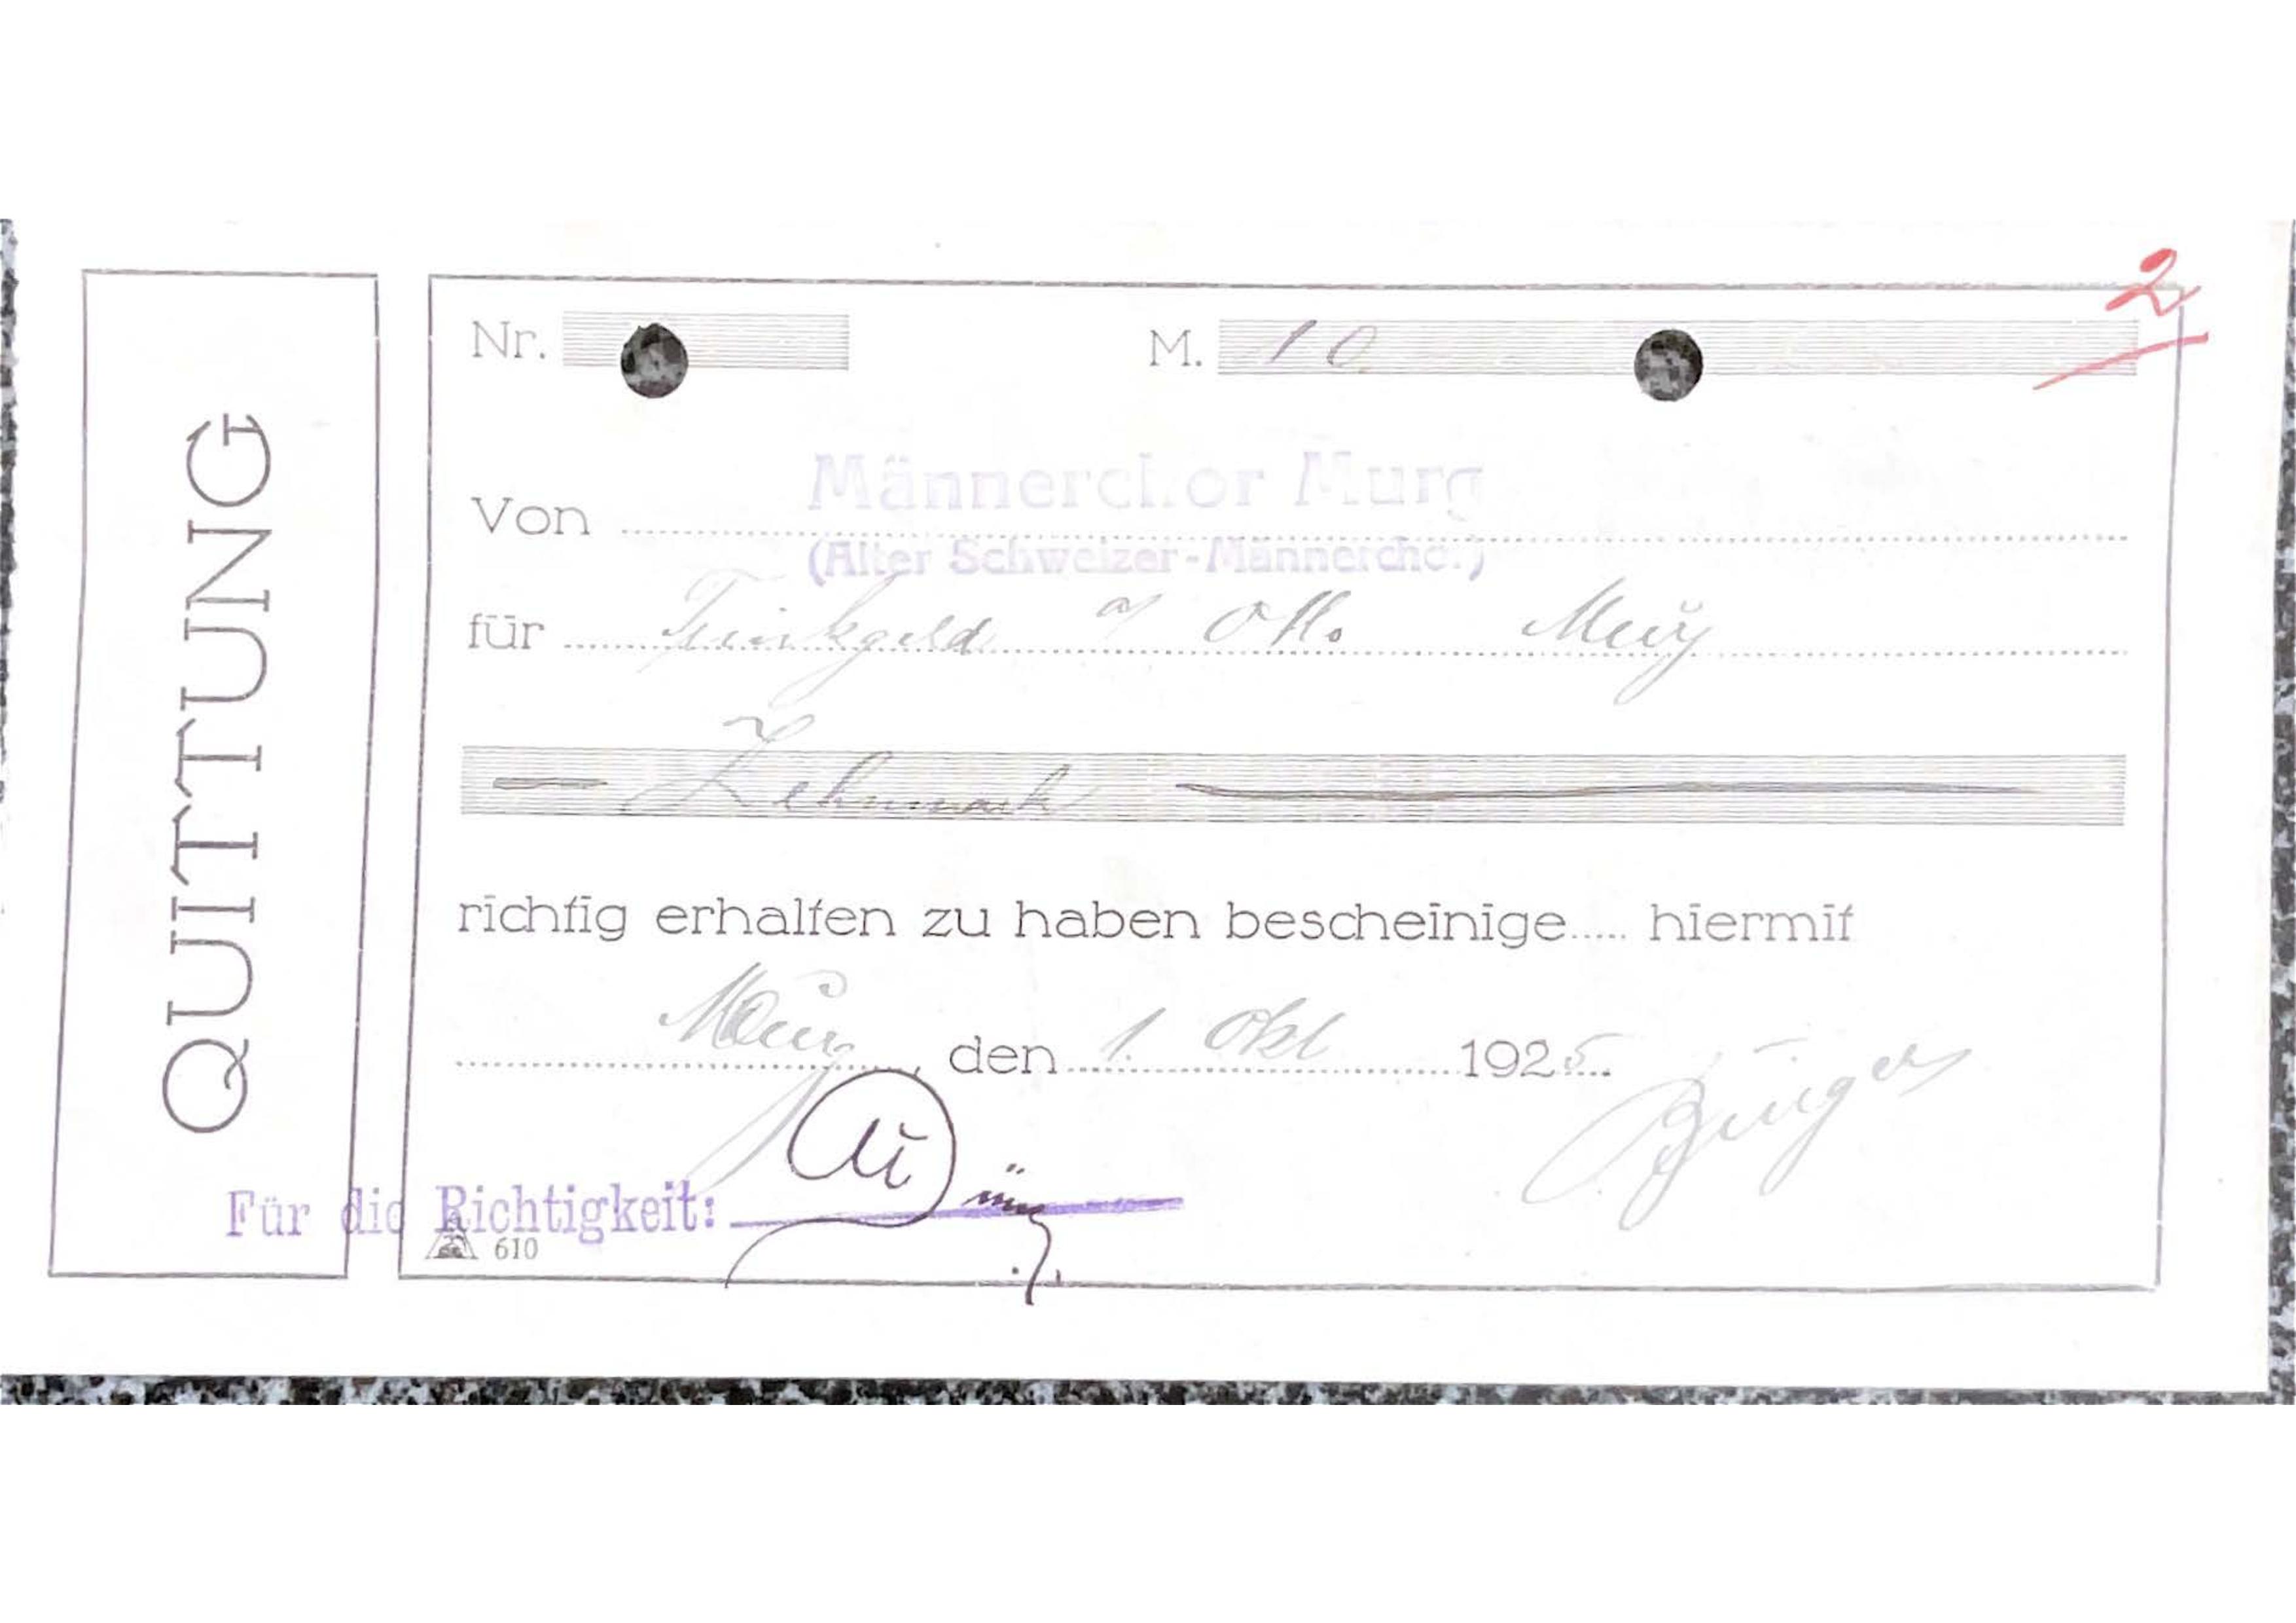 2
QUITTUNG
Nr.
M. 10
Männerchor Murg
Von
(Alter Schweizer-Männerchor)
für Trinkgeld Otto
Zehnmark
richtig erhalten zu haben bescheinige..... hiermit
Murg, den 1. Okt 1925
Burger
Für die Richtigkeit:
610